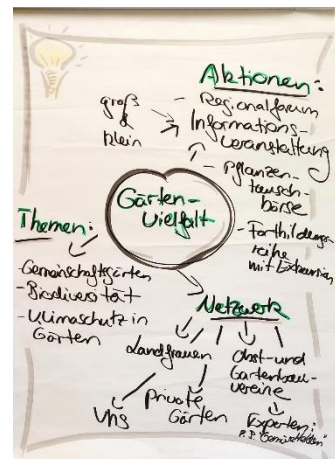 Aktionen:
- Regionalforum
groß
&
klein
Informations-
veranstaltung
- Pflanzen-
tausch-
börse
- Fortbildungs-
reihe
mit
Gärten-
Vielfalt
Themen:
- Gemeinschaftsgärten
- Biodiversität
- Klimaschutz in
Gärten
Netzwerk
Landfrauen
Obst- und
Gartenbau-
vereine
Vhs
Private
Gärten
Experten: